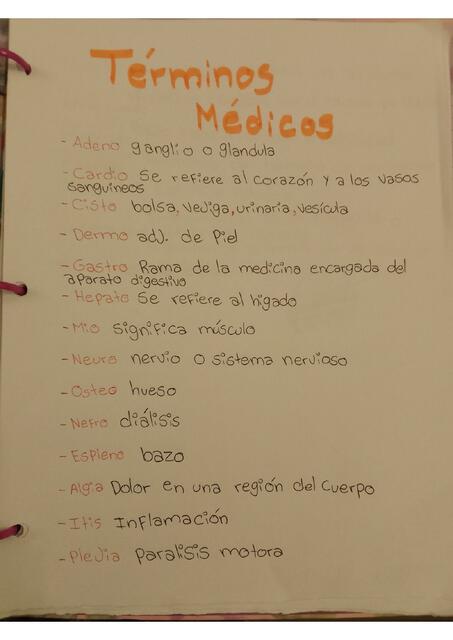 Términos
Médicos
- Adeno ganglio o glandula
- Cardio Se refiere al corazón y a los vasos
sanguineos
- Cisto bolsa, vediga, urinaria, vesícula
- Dermo adj. de Piel
- Gastro Rama de la medicina encargada del
aparato digestivo
- Hepato Se refiere al higado
- Mio significa músculo
- Neuro nervio o sistema nervioso
- Osteo hueso
- Nefro diálisis
- Espleno bazo
- Algia Dolor en una región del cuerpo
- Itis Inflamación
- Plejia Paralisis motora